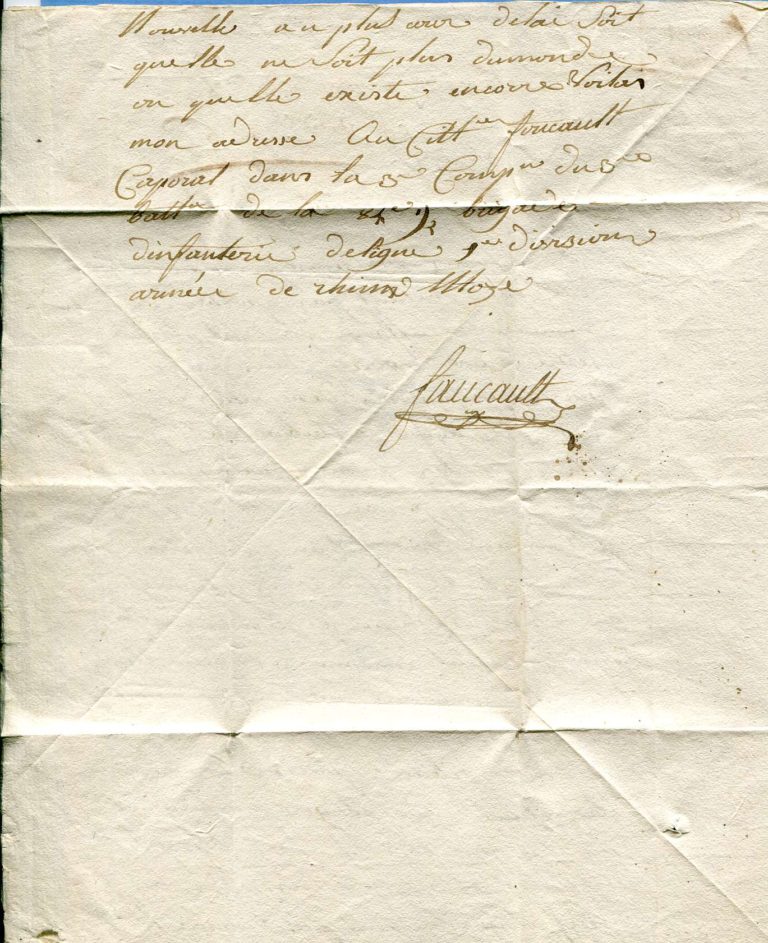 Nouvelle au plus cour delai Soit
quelle ne Soit plus du monde
ou quelle existe encorre Voilas
mon adresse Au Citt.en foucault
Caporal dans la 3e Comp.ie du 3.e
batt.on de la brigade
dinfanterie de ligne 1.ere division
armée de rhin
foucault